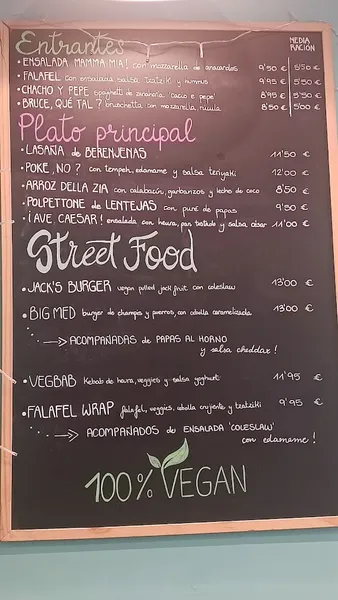 Entrantes
MEDIA RACIÓN
• ENSALADA MAMMA MIA! con mozzarella de anacardos 9'50 € 5'50 €
• FALAFEL con ensalada salsa tzatziki y hummus 9'95 € 5'50 €
• CHACHO Y PEPE spaghetti de zanahoria "cacio e pepe" 8'95 € 5'50 €
• BRUCE, QUÉ TAL? bruschetta con mozzarella rúcula 8'50 € 5'00 €
Plato principal
• LASAÑA de BERENJENAS 11'50 €
• POKE, NO? con tempeh, edamame y salsa teriyaki 12'00 €
• ARROZ DELLA ZIA con calabacín, garbanzos y leche de coco 8'50 €
• POLPETTONE de LENTEJAS con puré de papas 9'50 €
• ¡AVE, CAESAR! ensalada con heura, pan tostado y salsa césar 11'00 €
Street Food
• JACK'S BURGER vegan pulled jack fruit con coleslaw 13'00 €
• BIG MED burger de champis y puerros, con cebolla caramelizada 13'00 €
ACOMPAÑADAS de PAPAS AL HORNO
y salsa cheddar!
• VEGBAB Kebab de heura, veggies y salsa yoghurt 11'95 €
• FALAFEL WRAP falafel, veggies, cebolla crujiente y tzatziki 9'95 €
ACOMPAÑADOS de ENSALADA 'COLESLAW'
con edamame!
100% VEGAN